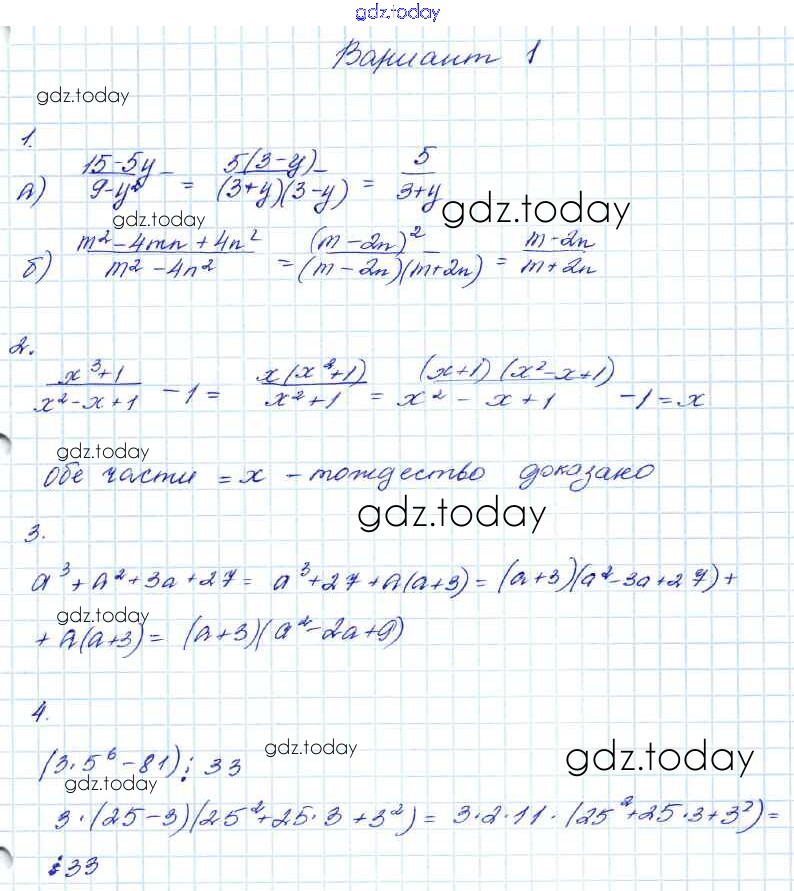 gdz.today
Вариант 1
gdz.today
1.
а) (15-5y)/(9-y²) = 5(3-y)/((3+y)(3-y)) = 5/(3+y)
gdz.today
gdz.today
б) (m²-4mn+4n²)/(m²-4n²) = (m-2n)²/((m-2n)(m+2n)) = (m-2n)/(m+2n)
2.
(x³+1)/(x²-x+1) -1 = x(x²+1)/(x²+1) = (x+1)(x²-x+1)/(x²-x+1) -1 = x
gdz.today
Обе части = x - тождество доказано
gdz.today
3.
a³+a²+3a+27 = a³+27+a(a+3) = (a+3)(a²-3a+27)+
gdz.today
+a(a+3) = (a+3)(a²-2a+9)
4.
(3·5⁶-81) ⋮ 33
gdz.today
gdz.today
gdz.today
3·(25-3)(25²+25·3+3²) = 3·2·11·(25²+25·3+3²) =
⋮33